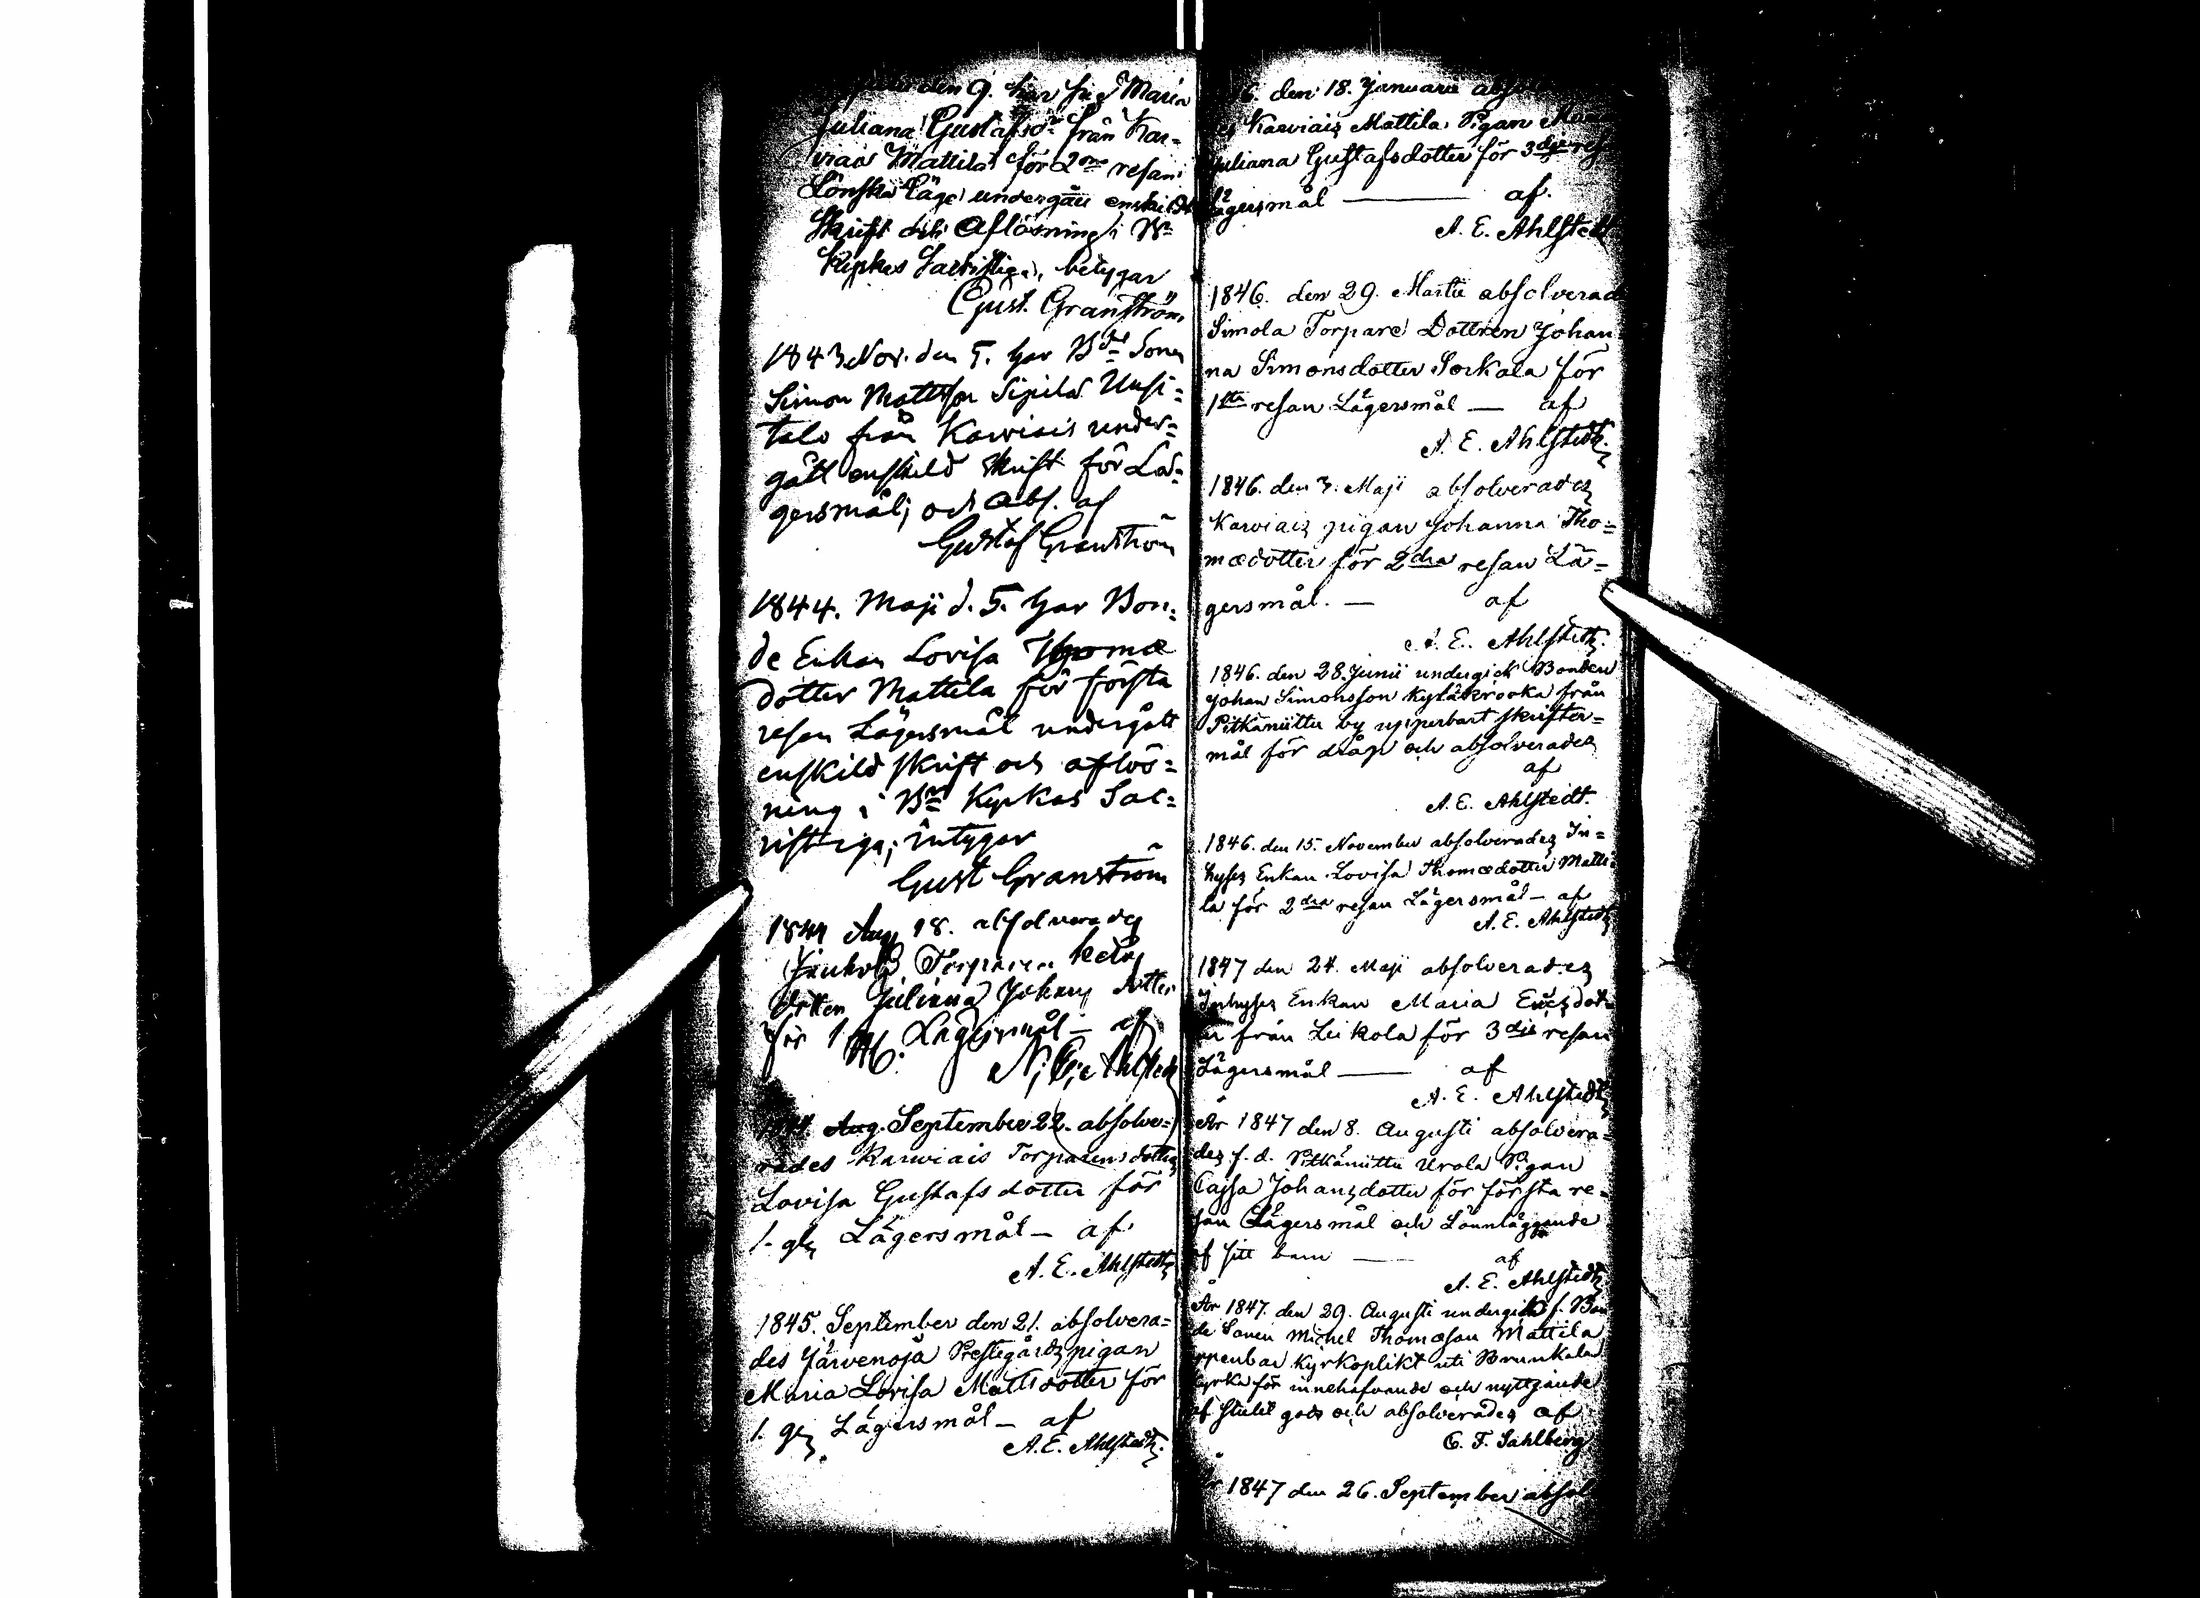 den 9. har Maria
Juliana Gustafsdr från Kar-
viais Mattila för 2dra resan
Lönska Läge undergått enskildt
Skrift och Aflösning i Bna
Kyrkas Sacristiga, betygar
Gust. Granström
1843 Nov. den 5. har Bde Sonen
Simon Mattsson Sipilä Uusi-
talo från Karviais under-
gått enskild skrift för Lä-
gersmål; och Abs. af
Gustaf Granström
1844. Maji d. 5. har Bon-
de Enkan Lovisa Thomæ
dotter Mattila för första
resan Lägersmål undergått
enskild skrift och aflös-
ning i Bna Kyrkas Sac-
ristiga; intygar
Gust Granström
1844 Aug 18. absolverades
Torparen
dottren Juliana Johans dotter
för 1 Lägersmål — af
A. E. Ahlstedt
1844. Aug. September 22. absolve-
rades Karviais Torparens dotter
Lovisa Gustafs dotter för
1. gg Lägersmål — af
A. E. Ahlstedt
1845. September den 21. absolvera-
des Järvenoja Prestegårds pigan
Maria Lovisa Matts dotter för
1. gg Lägersmål — af
A. E. Ahlstedt.
6. den 18. Januarii abs
Karviais Mattila Pigan
Juliana Gustafsdotter för 3dje
Lägersmål — af
A. E. Ahlstedt
1846. den 29. Martii absolverad
Simola Torpare Dottren Johan
na Simonsdotter Sorkala för
1sta resan Lägersmål — af
A. E. Ahlstedt.
1846. den 3. Maji absolverades
Karviais pigan Johanna Tho-
mædotter för 2dra resan Lä-
gersmål. — af
A. E. Ahlstedt.
1846. den 28. Junii undergick Bonden
Johan Simonsson Kyläkrooka från
Pitkäniittu by uppenbart skrifter-
mål för dråp och absolverades
af
A. E. Ahlstedt.
1846. den 15. November absolverades In-
hyses Enkan Lovisa Thomædotter Matti
la för 2dra resan Lägersmål — af
A. E. Ahlstedt
1847 den 24. Maji absolverades
Inhyses Enkan Maria Ericsdot
er från Leikola för 3dje resan
Lägersmål — af
A. E. Ahlstedt
År 1847 den 8. Augusti absolvera-
des f. d. Pitkäniittu Urola Pigan
Cajsa Johansdotter för första re-
san Lägersmål och Lönnläggande
af sitt barn — af
A. E. Ahlstedt
År 1847. den 29. Augusti undergick f. Bon
de Sonen Michel Thomæson Mattila
uppenbar Kyrkoplikt uti Brunkala
Kyrka för innehafvande och nyttjande
af stulit gods och absolverades af
C. F. Sahlberg
År 1847 den 26. September absol